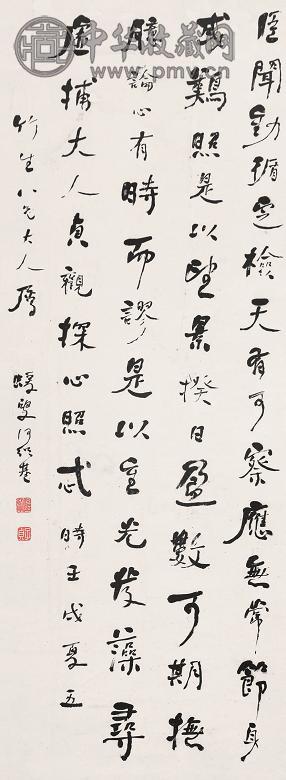 中华收藏网
www.pmv.cn
臣聞動循定檢天有可察應無常節身
或難照是以望景揆日盈數可期撫
臆論心有時而謬是以重光發藻尋
虛捕大人貞觀探心照忒時壬戌夏五
竹生八兄大人屬
蝯叟何紹基